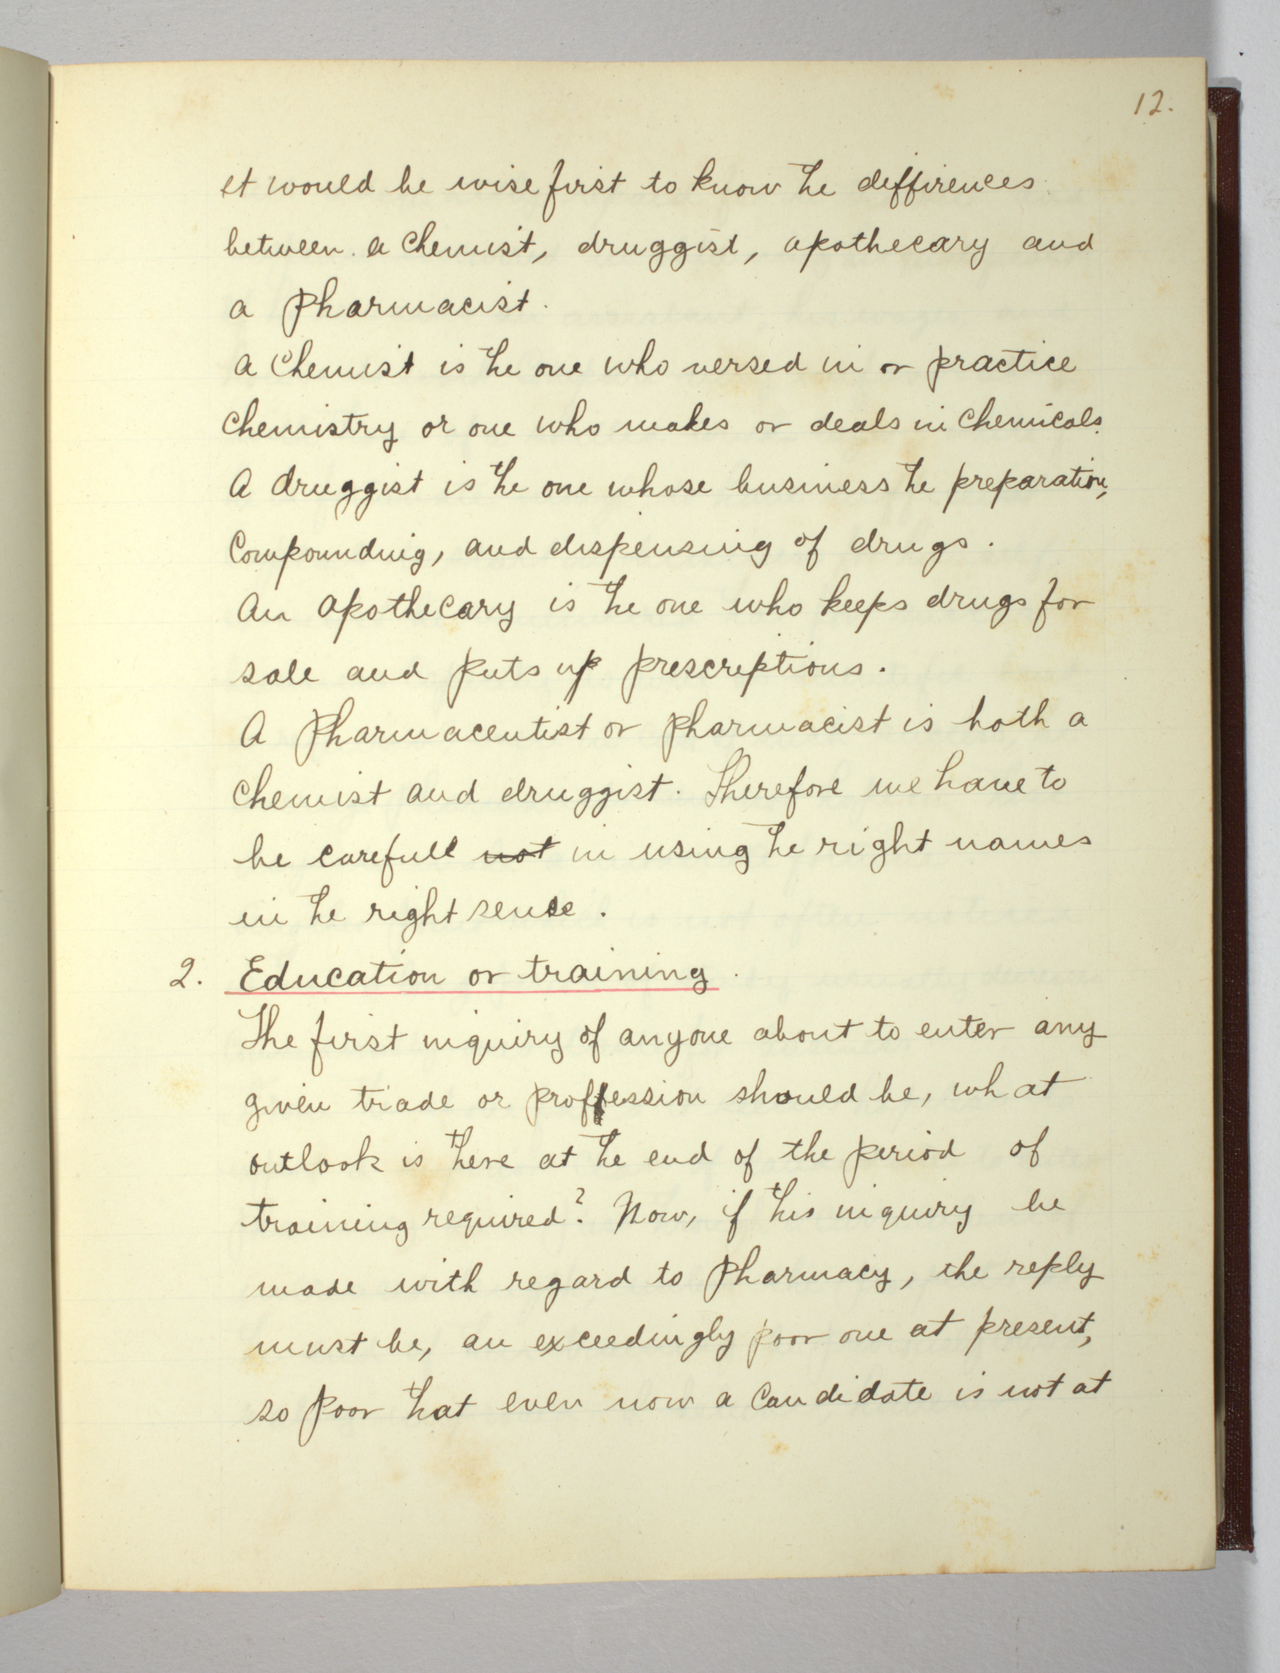 12.
It would be wise first to know the diffirences
between a chemist, druggist, apothecary and
a pharmacist.
A chemist is the one who versed in or practice
chemistry or one who makes or deals in chemicals.
A druggist is the one whose business the preparation,
compounding, and dispensing of drugs.
An apothecary is the one who keeps drugs for
sale and puts up prescriptions.
A pharmaceutist or pharmacist is both a
chemist and druggist. Therefore we have to
be carefull not in using the right names
in the right sense.
2. Education or training.
The first inquiry of anyone about to enter any
given trade or proffession should be, what
outlook is there at the end of the period of
training required? Now, if this inquiry be
made with regard to pharmacy, the reply
must be, an exceedingly poor one at present,
so poor that even now a candidate is not at